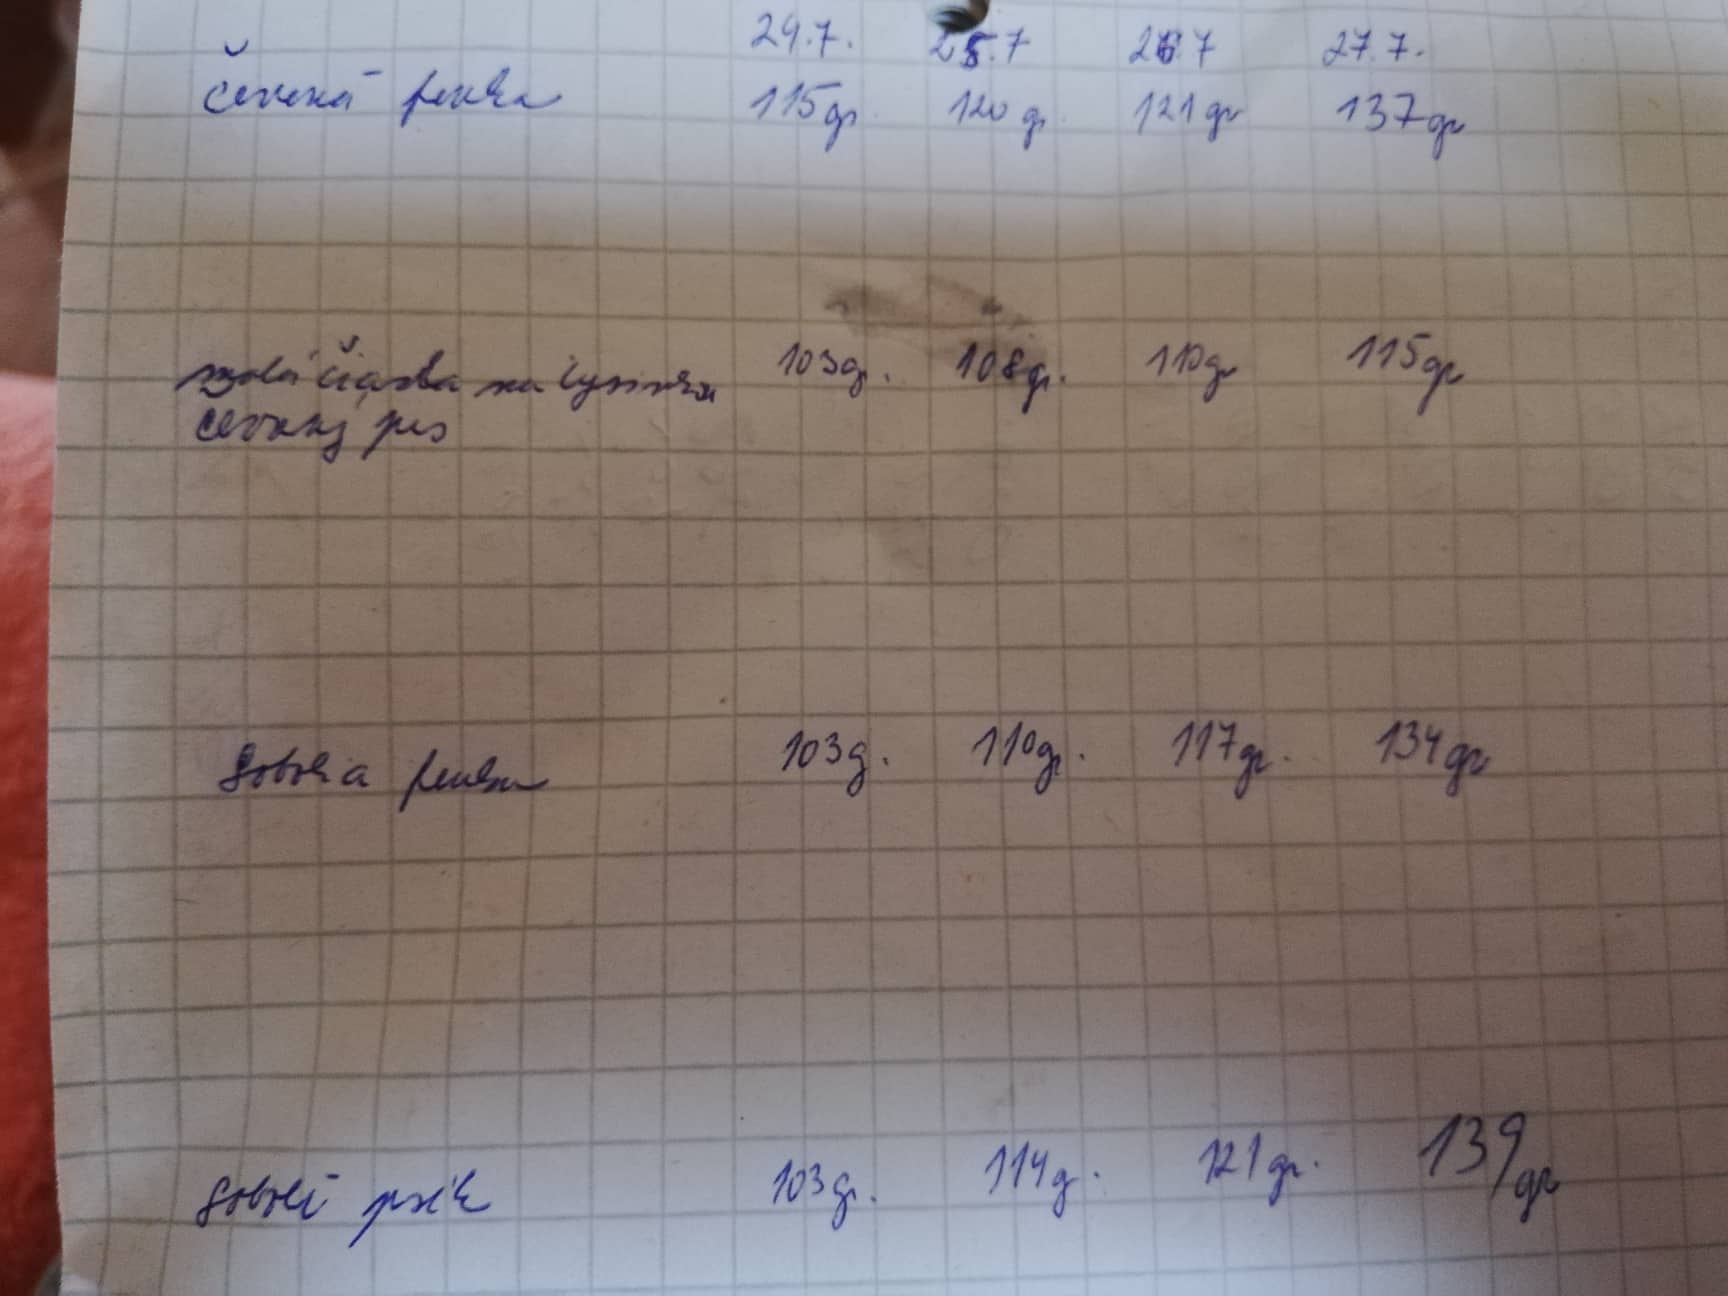 24.7. 25.7 26.7 27.7.
červená fenka 115gr. 120 gr. 121 gr 137 gr
malá čiarka na lysinke 103g. 108gr. 110gr 115gr
červený pes
Sobolia fenka 103g. 110gr. 117gr. 134gr
Sobolí psík 103gr. 114g. 121gr. 139gr